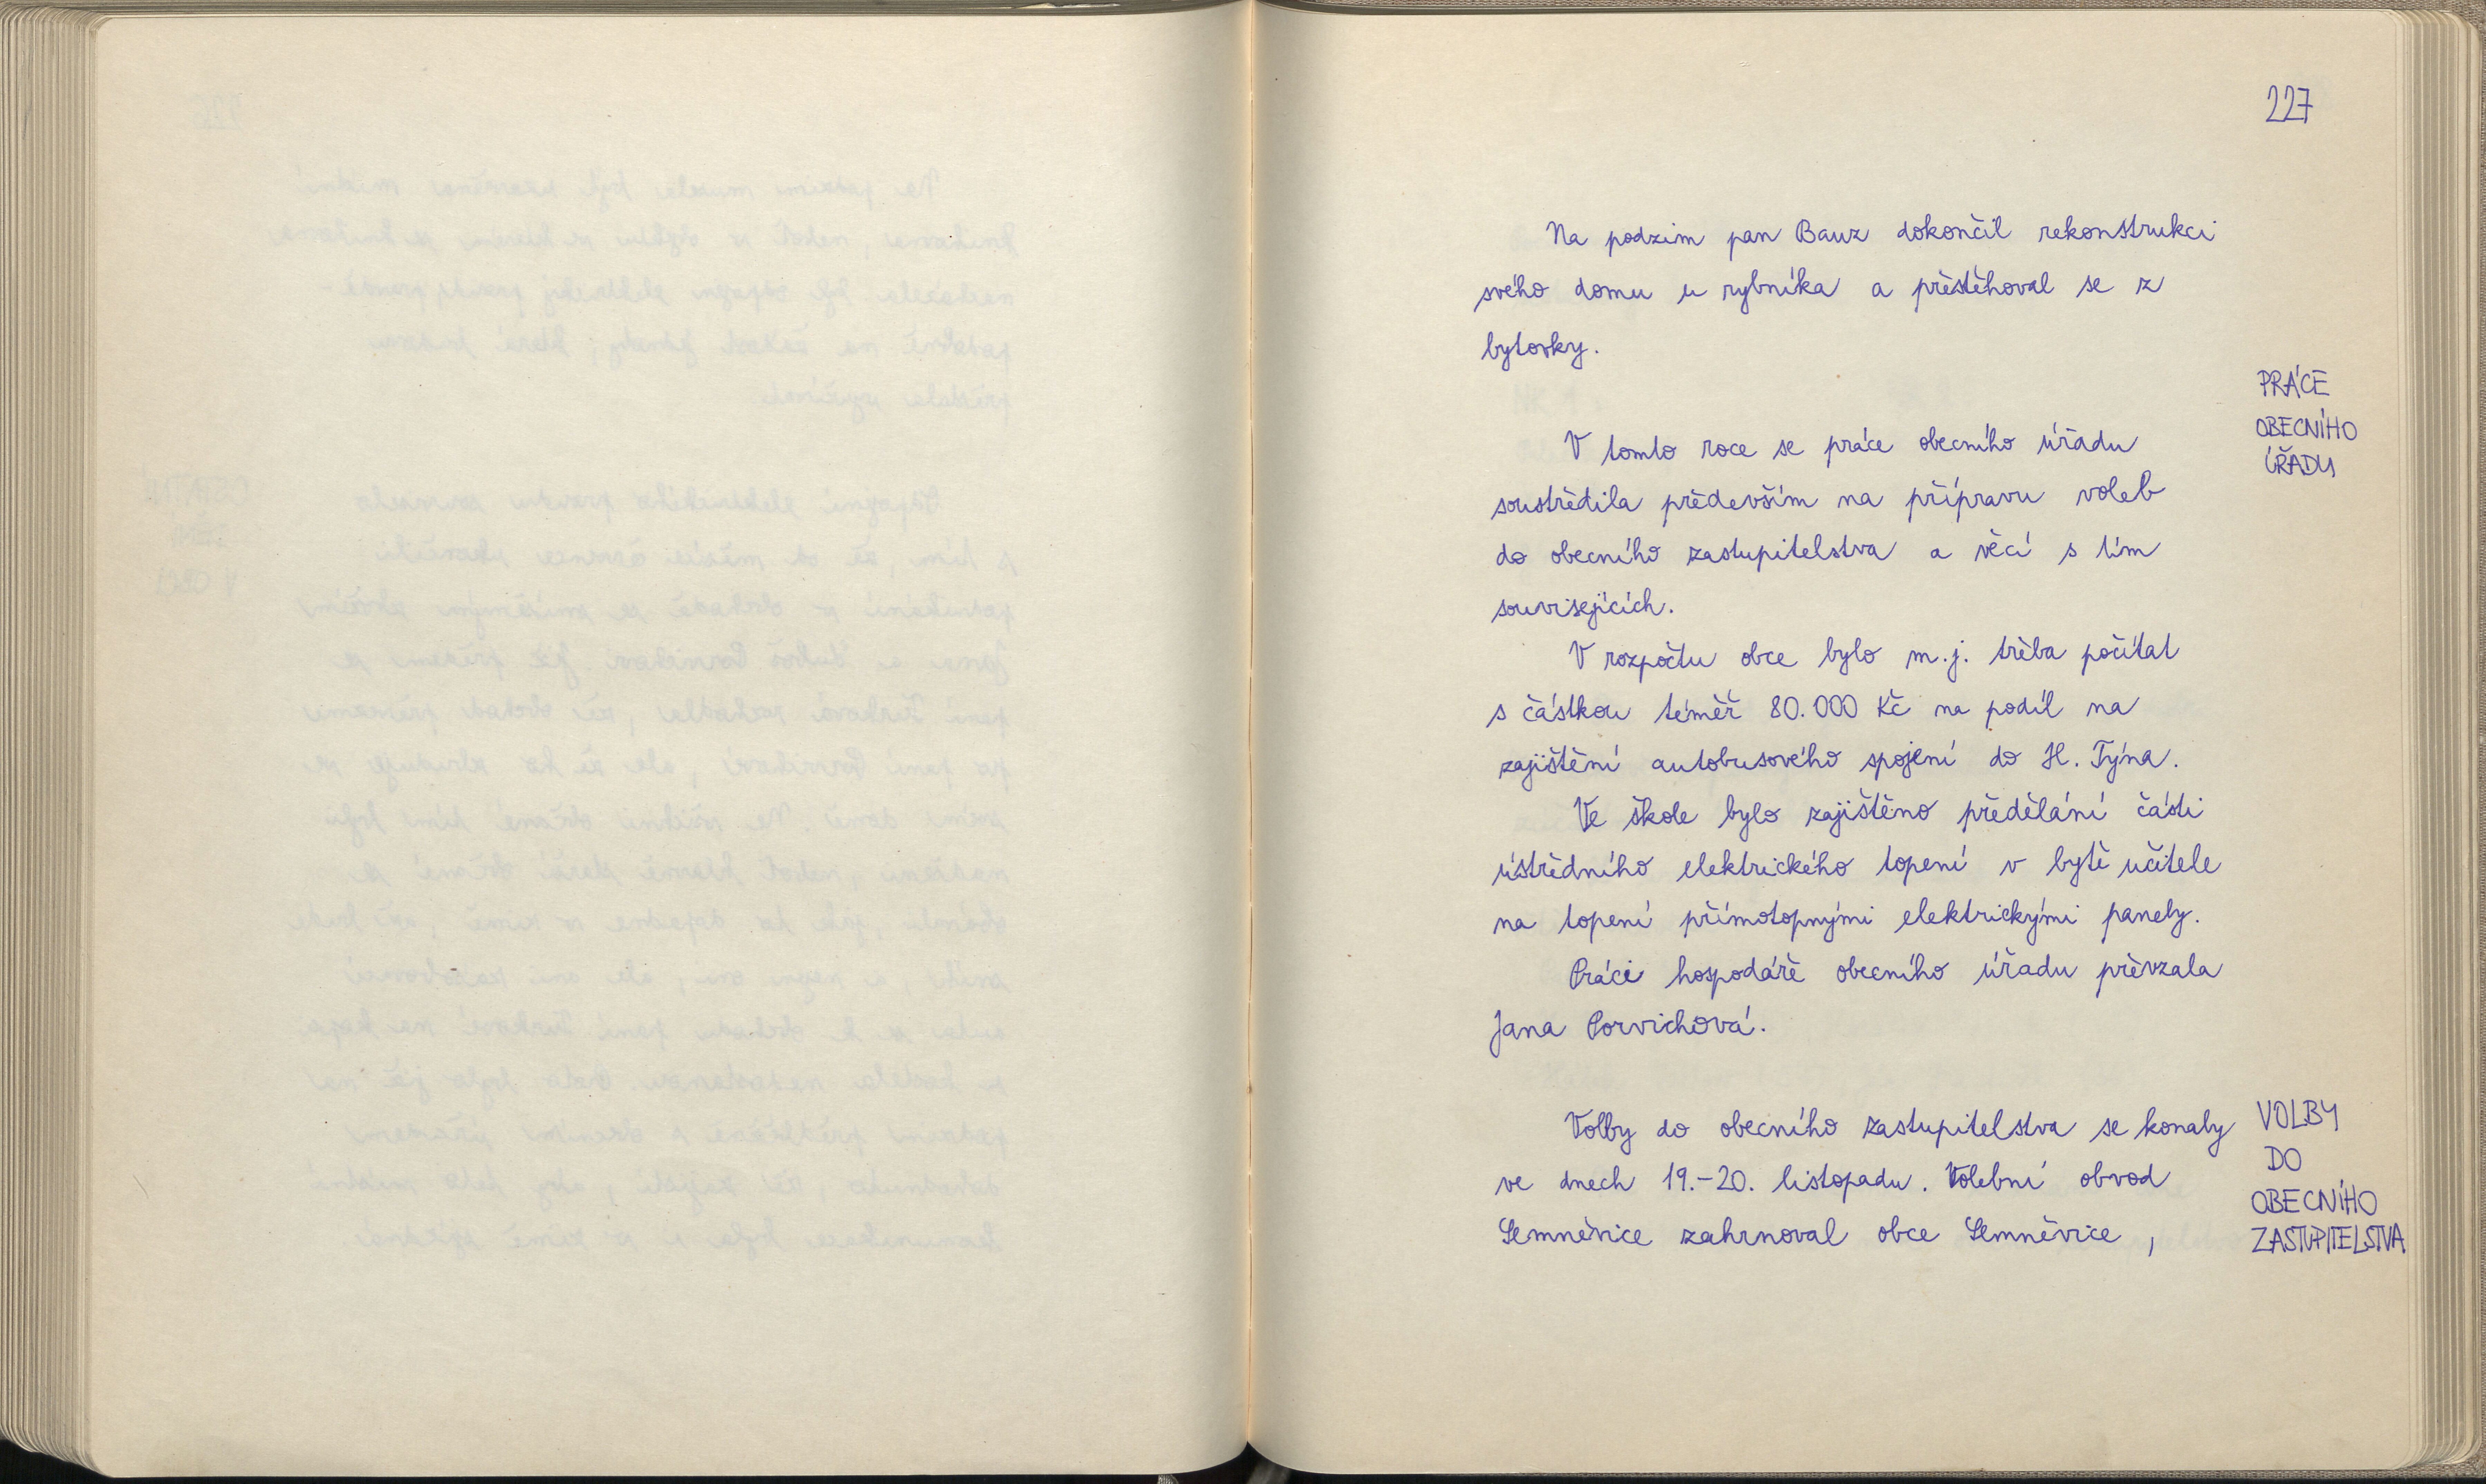 227
Na podzim pan Bauz dokončil rekonstrukci
svého domu u rybníka a přestěhoval se z
bytovky.
PRÁCE
OBECNÍHO
ÚŘADU
V tomto roce se práce obecního úřadu
soustředila především na přípravu voleb
do obecního zastupitelstva a věcí s tím
souvisejících.
V rozpočtu obce bylo m.j. třeba počítat
s částkou téměř 80.000 Kč na podíl na
zajištění autobusového spojení do H. Týna.
Ve škole bylo zajištěno předělání části
ústředního elektrického topení v bytě učitele
na topení přímotopnými elektrickými panely.
Práci hospodáře obecního úřadu převzala
Jana Porvichová.
Volby do obecního zastupitelstva se konaly
ve dnech 19.-20. listopadu. Volební obvod
Semněvice zahrnoval obce Semněvice,
VOLBY
DO
OBECNÍHO
ZASTUPITELSTVA